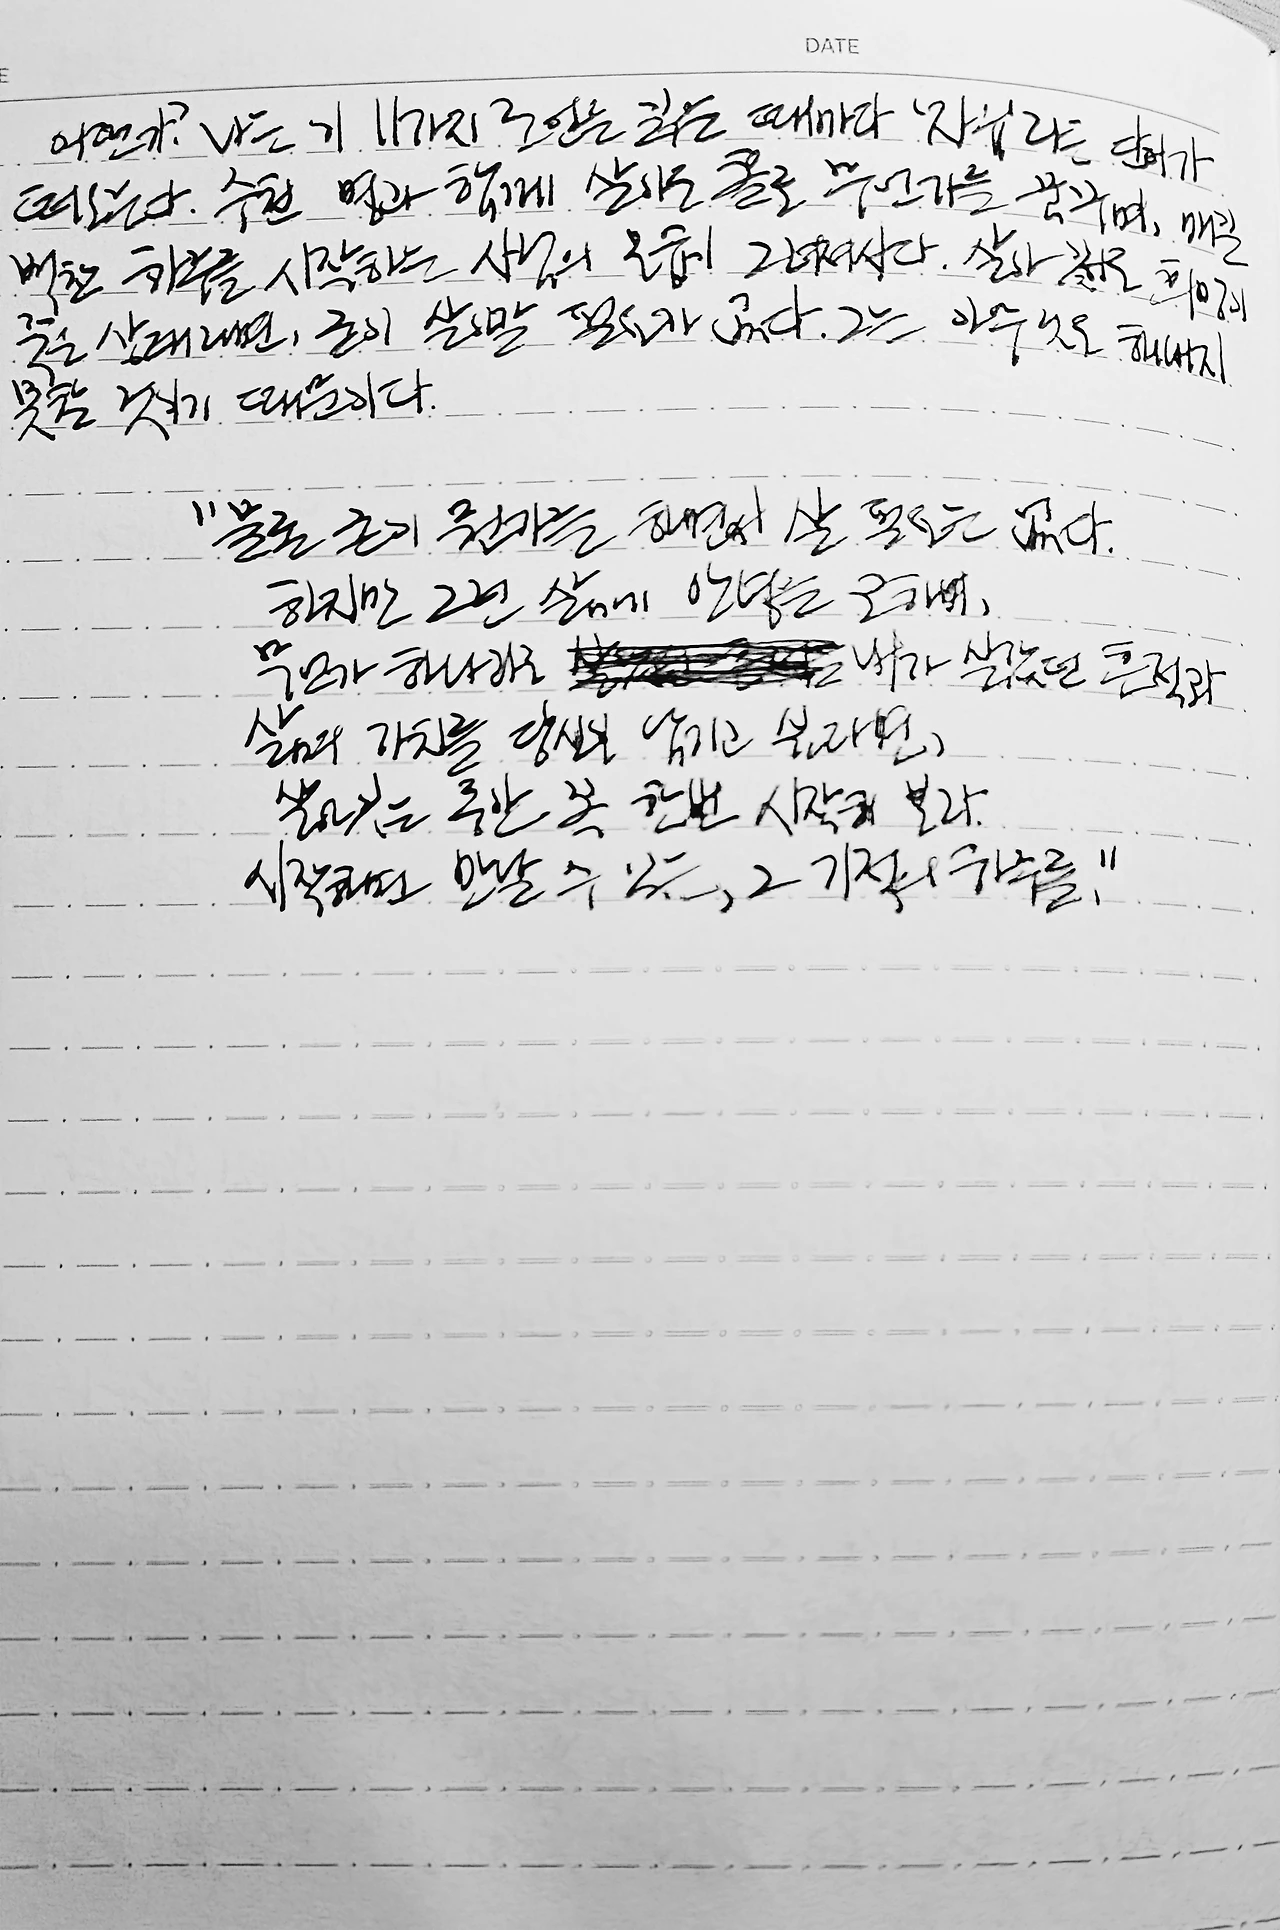 DATE
어떤가? 나는 이 11가지 조언을 읽을 때마다 '자립'라는 단어가
떠오른다. 수천 명과 함께 살아도 홀로 무언가를 꿈꾸며, 매일
벅찬 하루를 시작하는 사람의 모습이 그려진다. 살아 있어도 희망이
죽은 상태라면, 굳이 살아갈 필요가 없다. 그는 아무것도 해내지
못할 것이기 때문이다.
"물론 굳이 무언가를 하면서 살 필요는 없다.
하지만 그런 삶에 안녕을 고하며,
무언가 하나라도 내가 살았던 흔적과
삶의 가치를 당신이 남기고 싶다면,
살아있는 동안 꼭 한번 시작해 보라.
시작하면 만날 수 있는, 그 기적의 하루를."